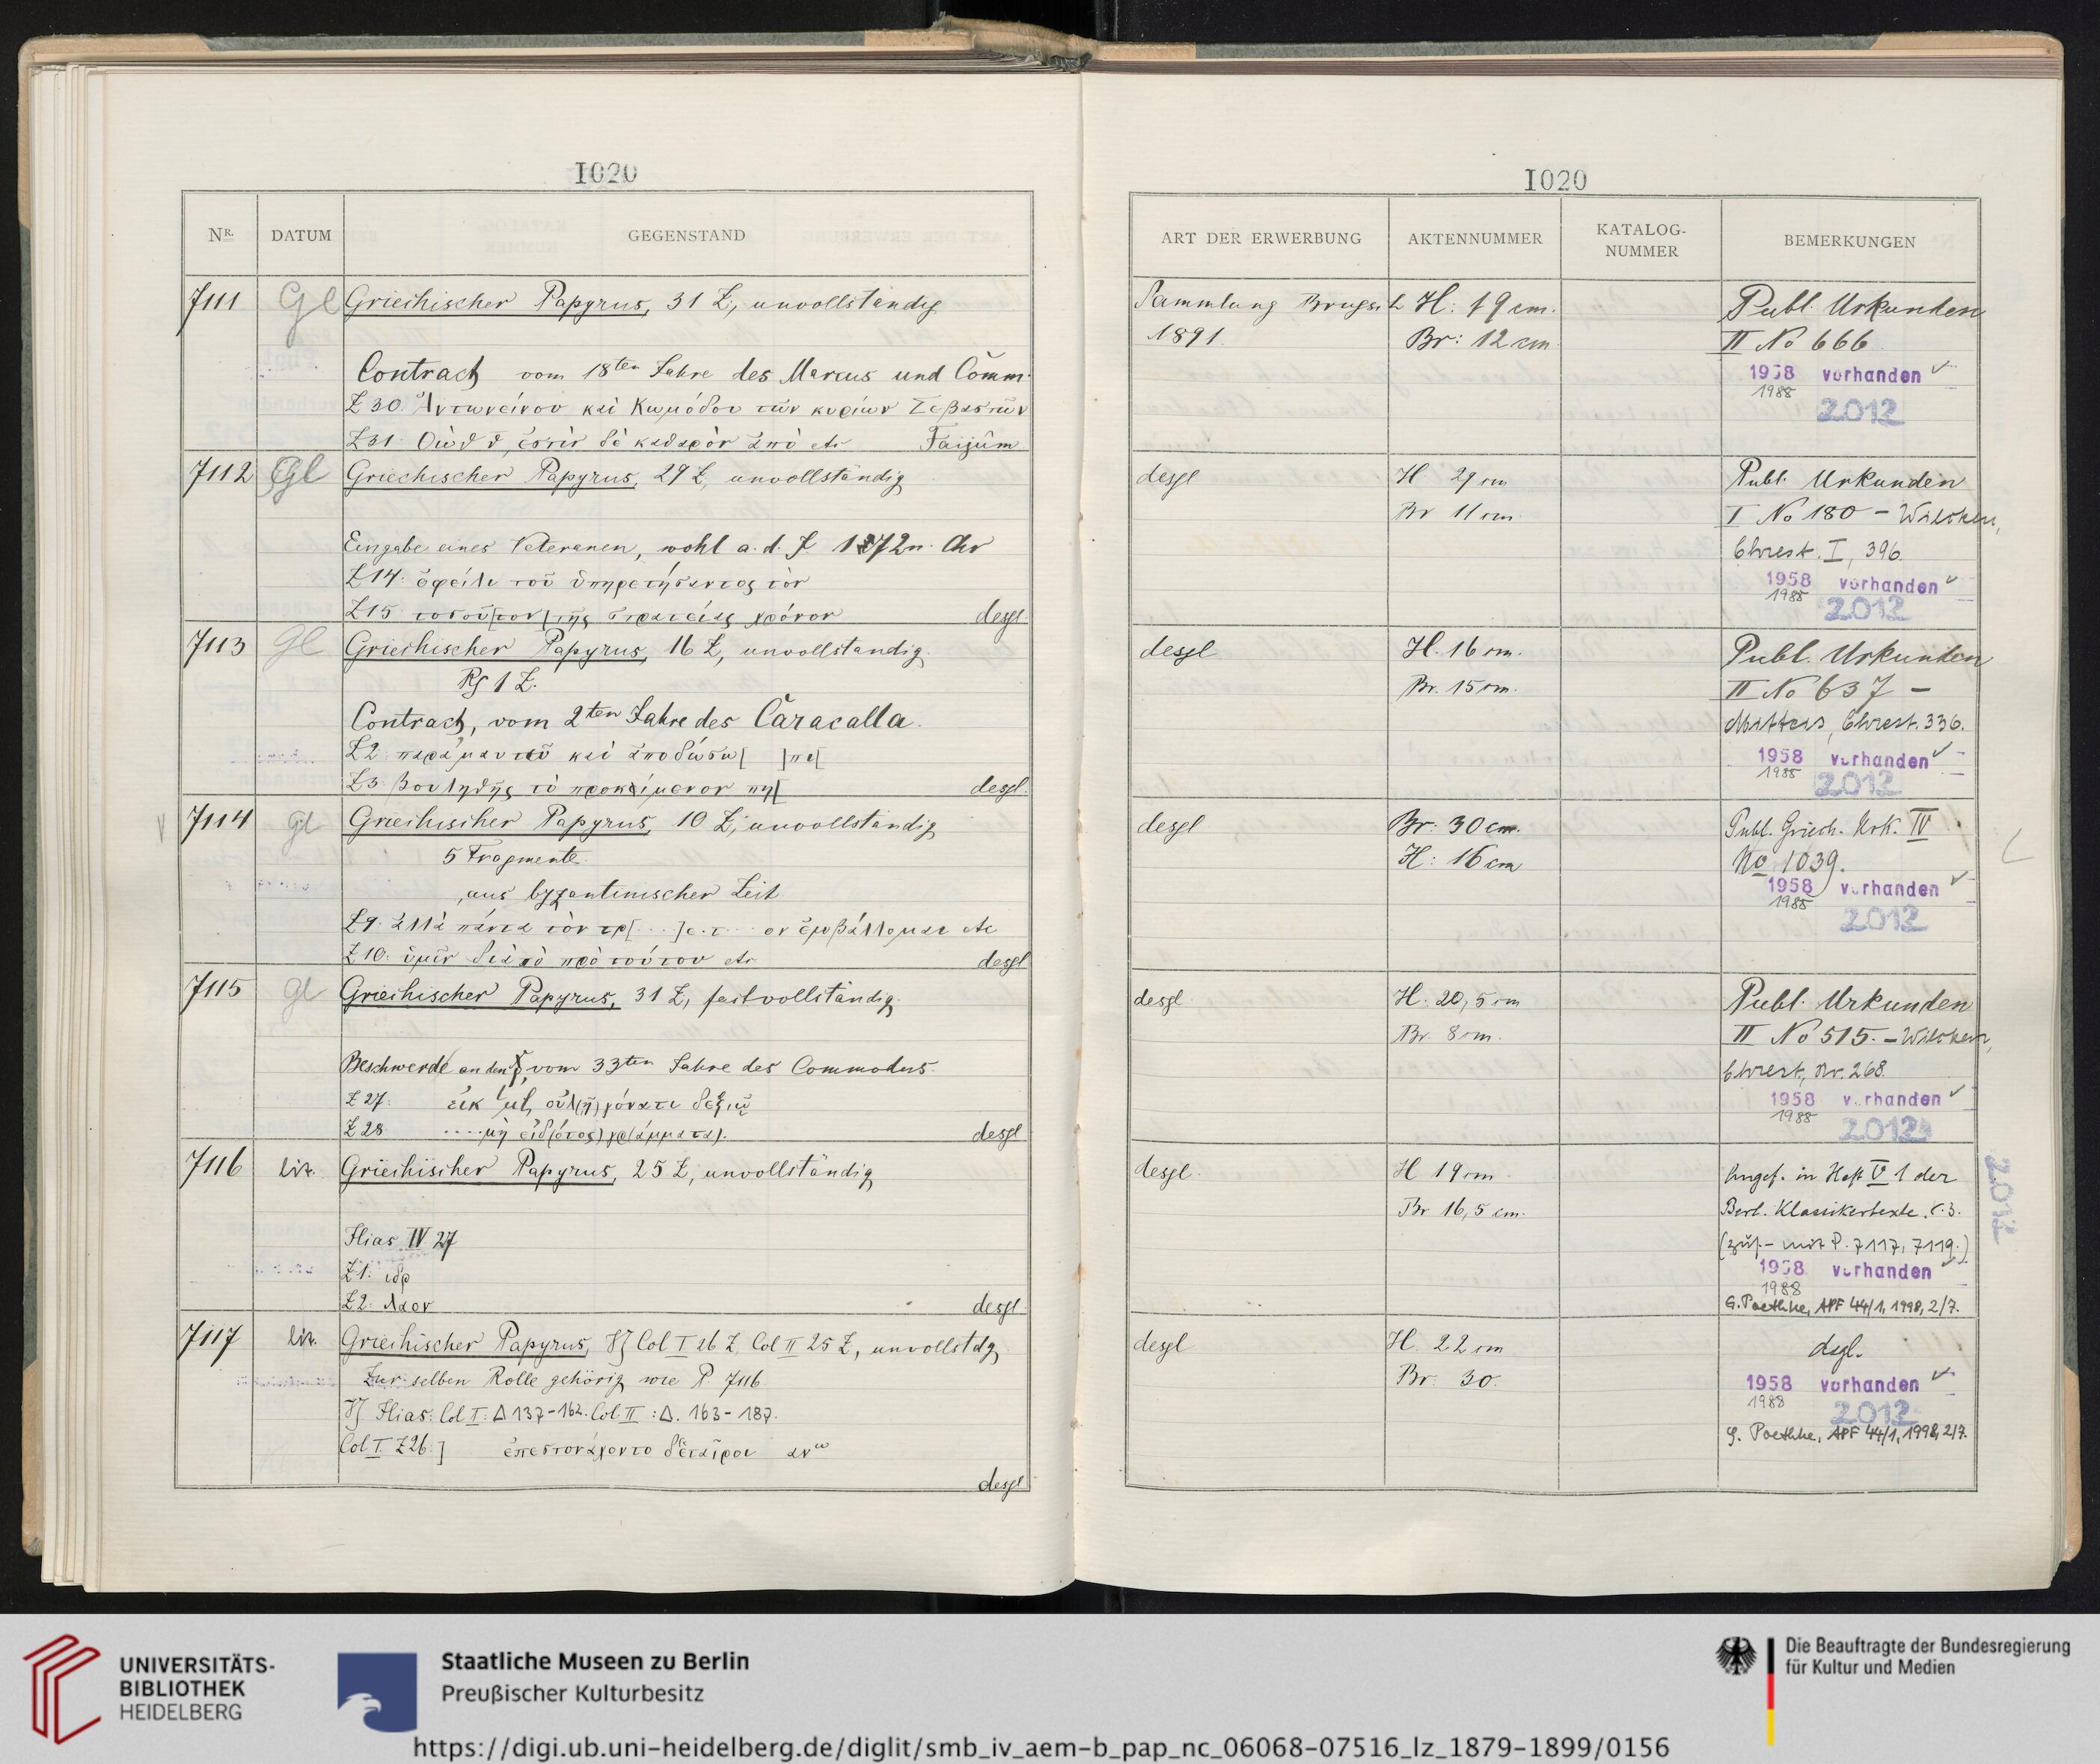 1020
Nr. DATUM GEGENSTAND
7111 Gl Griechischer Papyrus, 31 Z, unvollständig
Contract vom 18ten Jahre des Marcus und Comm.
Z 30. Ἀντωνείνου καὶ Κωμόδου τῶν κυρίων Σεβαστῶν
Z 31. ἐστὶν δὲ καθαρὸν ἀπὸ etc Faijûm
7112 Gl Griechischer Papyrus, 29 Z, unvollständig
Eingabe eines Veteranen, wohl a. d. J 172 n. Chr
Z 14. τοῦ ὑπηρετήσαντος τὸν
Z 15 τοσοῦ[τον] τῆς στρατείας χρόνον desgl.
7113 Gl Griechischer Papyrus, 16 Z, unvollständig.
Rs 1 Z.
Contract, vom 2ten Jahre des Caracalla.
Z 2. καὶ ἀποδώσω[
Z 3. βουληθῇς τὸ προκείμενον desgl.
7114 Gl Griechischer Papyrus, 10 Z, unvollständig
5 Fragmente.
aus byzantinischer Zeit
Z 9. ἀλλὰ πάντα τὸν ἐμβάλλομαι etc
Z 10. ὑμῖν διὰ τὸ πρὸ τούτου etc desgl
7115 Gl Griechischer Papyrus, 31 Z, fast vollständig.
Beschwerde an den vom 33ten Jahre des Commodus.
Z 27. οὐλ(ὴ) γόνατι δεξιῷ
Z 28 .... μὴ εἰδ(ότος) γρ(άμματα). desgl
7116 lit. Griechischer Papyrus, 25 Z, unvollständig
Ilias IV 27
Z 1. ιδρ
Z 2. λαον desgl.
7117 lit. Griechischer Papyrus, Vs Col I 26 Z, Col II 25 Z, unvollstdg
Zur selben Rolle gehörig wie P. 7116
Vs Ilias: Col I: Δ 137-162. Col II: Δ. 163-187.
Col I. Z 26.]
desgl
1020
ART DER ERWERBUNG AKTENNUMMER KATALOG-NUMMER BEMERKUNGEN
Sammlung Brugsch H: 19 cm. Publ. Urkunden
1891. Br: 12 cm II No 666
1958 vorhanden ✓
1988
2012
desgl H 29 cm Publ. Urkunden
Br 11 cm. I No 180 - Wilcken,
Chrest. I, 396.
1958 vorhanden ✓
1988 2012
desgl H. 16 cm. Publ. Urkunden
Br. 15 cm. II No 637 -
Mitteis, Chrest. 336.
1958 vorhanden ✓
1988 2012
desgl Br: 30 cm. Publ. Griech. Urk. IV
H: 16 cm No 1039.
1958 vorhanden ✓
1988 2012
desgl. H. 20,5 cm Publ. Urkunden
Br. 8 cm. II No 515. - Wilcken,
Chrest, Nr. 268.
1958 vorhanden ✓
1988 2012
desgl. H 19 cm. Angef. in Heft V 1 der
Br 16,5 cm. Berl. Klassikertexte. S. 3.
(zus. - mit P. 7117, 7119.)
1958 vorhanden
1988 2012
G. Poethke, APF 44/1, 1998, 2/7.
desgl H. 22 cm dsgl.
Br. 30. 1958 vorhanden ✓
1988 2012
G. Poethke, APF 44/1, 1998, 2/7.
UNIVERSITÄTS-
BIBLIOTHEK
HEIDELBERG
Staatliche Museen zu Berlin
Preußischer Kulturbesitz
Die Beauftragte der Bundesregierung
für Kultur und Medien
https://digi.ub.uni-heidelberg.de/diglit/smb_iv_aem-b_pap_nc_06068-07516_lz_1879-1899/0156